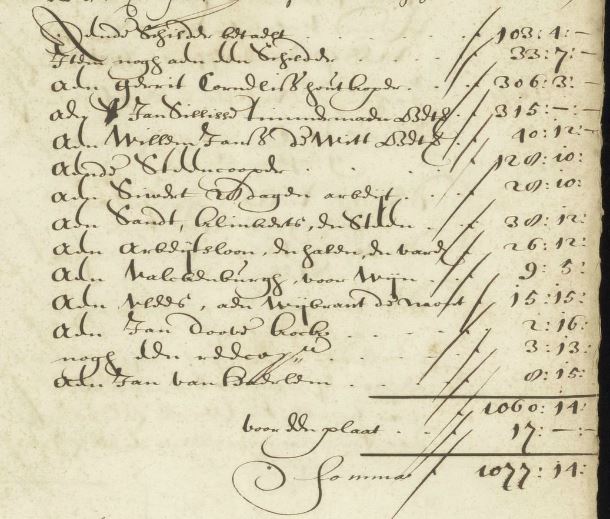 aende Schilder betaelt . . . . 103:4:-
Item nogh aen den Schilder . . 33:7:-
aen gerrit Corneliss houtkoper . . 306:3:-
aen Jan Sillisse timmerman 315:-:-
aen Willem Janss de Witt 40:12:-
aende Steencooper . . . 128:10:
aen Siwert 28 dagen arbeijt . . . 28:10:
aen Sandt, klinkerts, en Steen . . 38:12:
aen arbeijtsloon, en halen, en varen 26:12:
aen Valckenburgh, voor Wijn . . . 9:5:
aen Vlees, aen Wijbrant de 15:15:
aen Jan doove . . . 2:16:
nogh een . . . 3:13:
aen Jan van Haerlem . . . 8:15:
1060:14:
voor den plaat . . 17:-:-
Somma 1077:14: